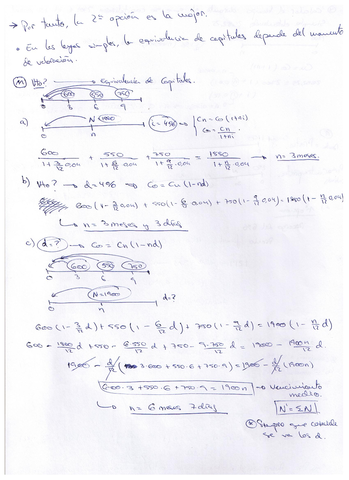 → Por tanto, la 2ª opción es la mejor.
• En las leyes simples, la equivalencia de capitales depende del momento
de valoración.
Vto? → equivalencia de capitales.
600 550 750
0 3 6 9
a)
N
0 n
Cn = Co (1+ni)
Co = Cn / 1+ni
600 / 1+3/12 0.04 + 550 / 1+6/12 0.04 + 750 / 1+9/12 0.04 = / 1+n/12 0.04 → n = 3 meses.
b) Vto? → d = 4% → Co = Cn (1-nd)
600 (1-3/12 0.04) + 550 (1-6/12 0.04) + 750 (1-9/12 0.04) =
↳ n = 3 meses y 3 días
c) d = ? → Co = Cn (1-nd)
600 550 750
0 3 6 9
N=1900
0 n d=?
600 (1-3/12 d) + 550 (1-6/12 d) + 750 (1-9/12 d) = 1900 (1-n/12 d)
600 - 1800/12 d + 550 - 6·550/12 d + 750 - 9·750/12 d = 1900 - 1900n/12 d.
1900 - d/12 (3·600 + 550·6 + 750·9) = 1900 - d/12 (1900n)
600·3 + 550·6 + 750·9 = 1900n → Vencimiento
medio.
↳ n = 6 meses 7 días
N' = ΣN
* Siempre que coincide
se va los d.